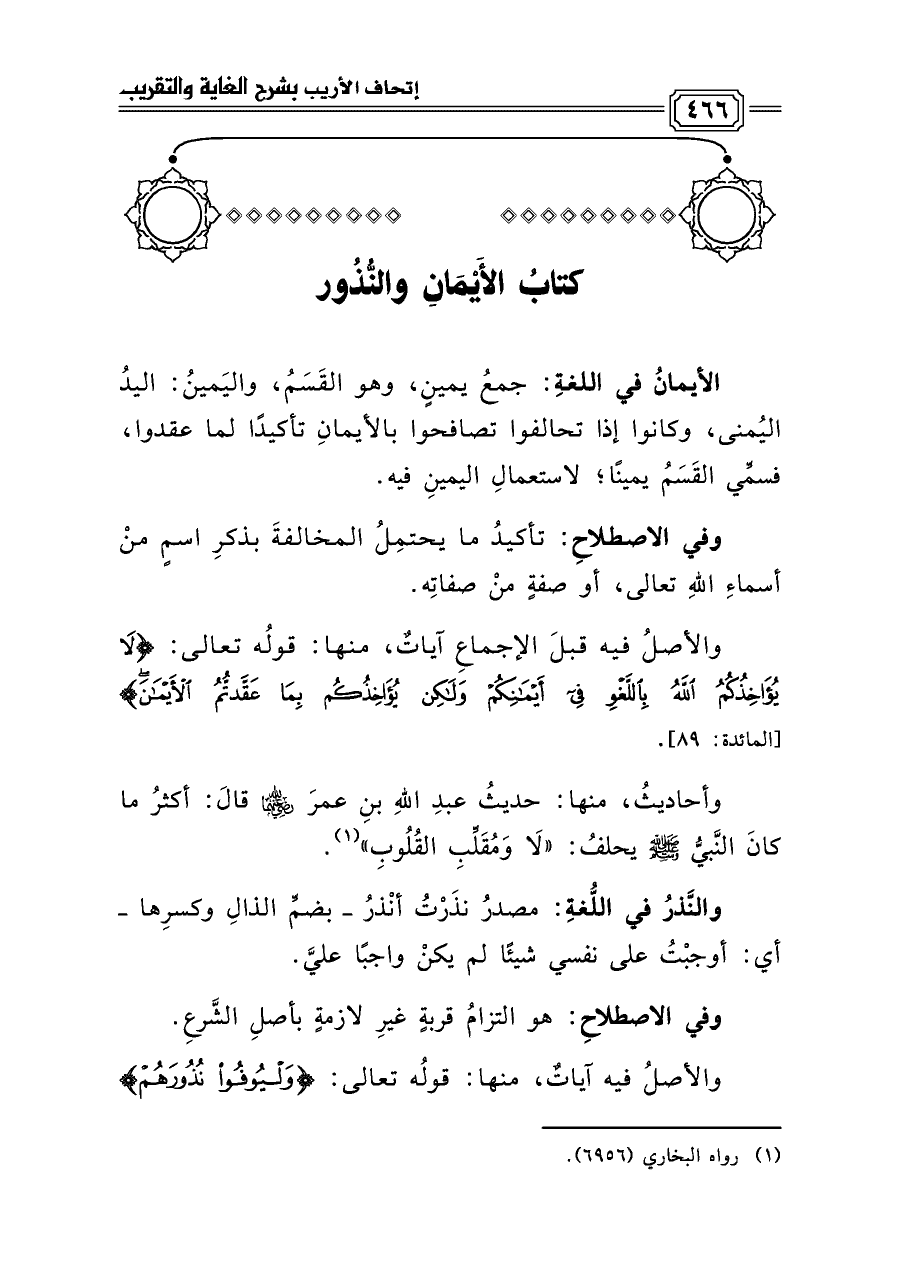 إتحاف الأريب بشرح الغاية والتقريب
٤٦٦
كتابُ الأَيْمَانِ والنُّذُور
الأيمانُ في اللغةِ: جمعُ يمينٍ، وهو القَسَمُ، واليَمينُ: اليدُ
اليُمنى، وكانوا إذا تحالفوا تصافحوا بالأيمانِ تأكيدًا لما عقدوا،
فسمِّي القَسَمُ يمينًا؛ لاستعمالِ اليمينِ فيه.
وفي الاصطلاحِ: تأكيدُ ما يحتمِلُ المخالفةَ بذكرِ اسمٍ منْ
أسماءِ اللهِ تعالى، أو صفةٍ منْ صفاتِه.
والأصلُ فيه قبلَ الإجماعِ آياتٌ، منها: قولُه تعالى: ﴿لَا
يُؤَاخِذُكُمُ ٱللَّهُ بِٱللَّغْوِ فِىٓ أَيْمَٰنِكُمْ وَلَٰكِن يُؤَاخِذُكُم بِمَا عَقَّدتُّمُ ٱلْأَيْمَٰنَۖ﴾
[المائدة: ٨٩].
وأحاديثُ، منها: حديثُ عبدِ اللهِ بنِ عمرَ رضي الله عنهما قالَ: أكثرُ ما
كانَ النَّبيُّ ﷺ يحلفُ: «لَا وَمُقَلِّبِ القُلُوبِ»(١).
والنَّذرُ في اللُّغةِ: مصدرُ نذَرْتُ أنْذرُ ـ بضمِّ الذالِ وكسرِها ـ
أي: أوجبْتُ على نفسي شيئًا لم يكنْ واجبًا عليَّ.
وفي الاصطلاحِ: هو التزامُ قربةٍ غيرِ لازمةٍ بأصلِ الشَّرعِ.
والأصلُ فيه آياتٌ، منها: قولُه تعالى: ﴿وَلْيُوفُوا۟ نُذُورَهُمْ﴾
(١) رواه البخاري (٦٩٥٦).